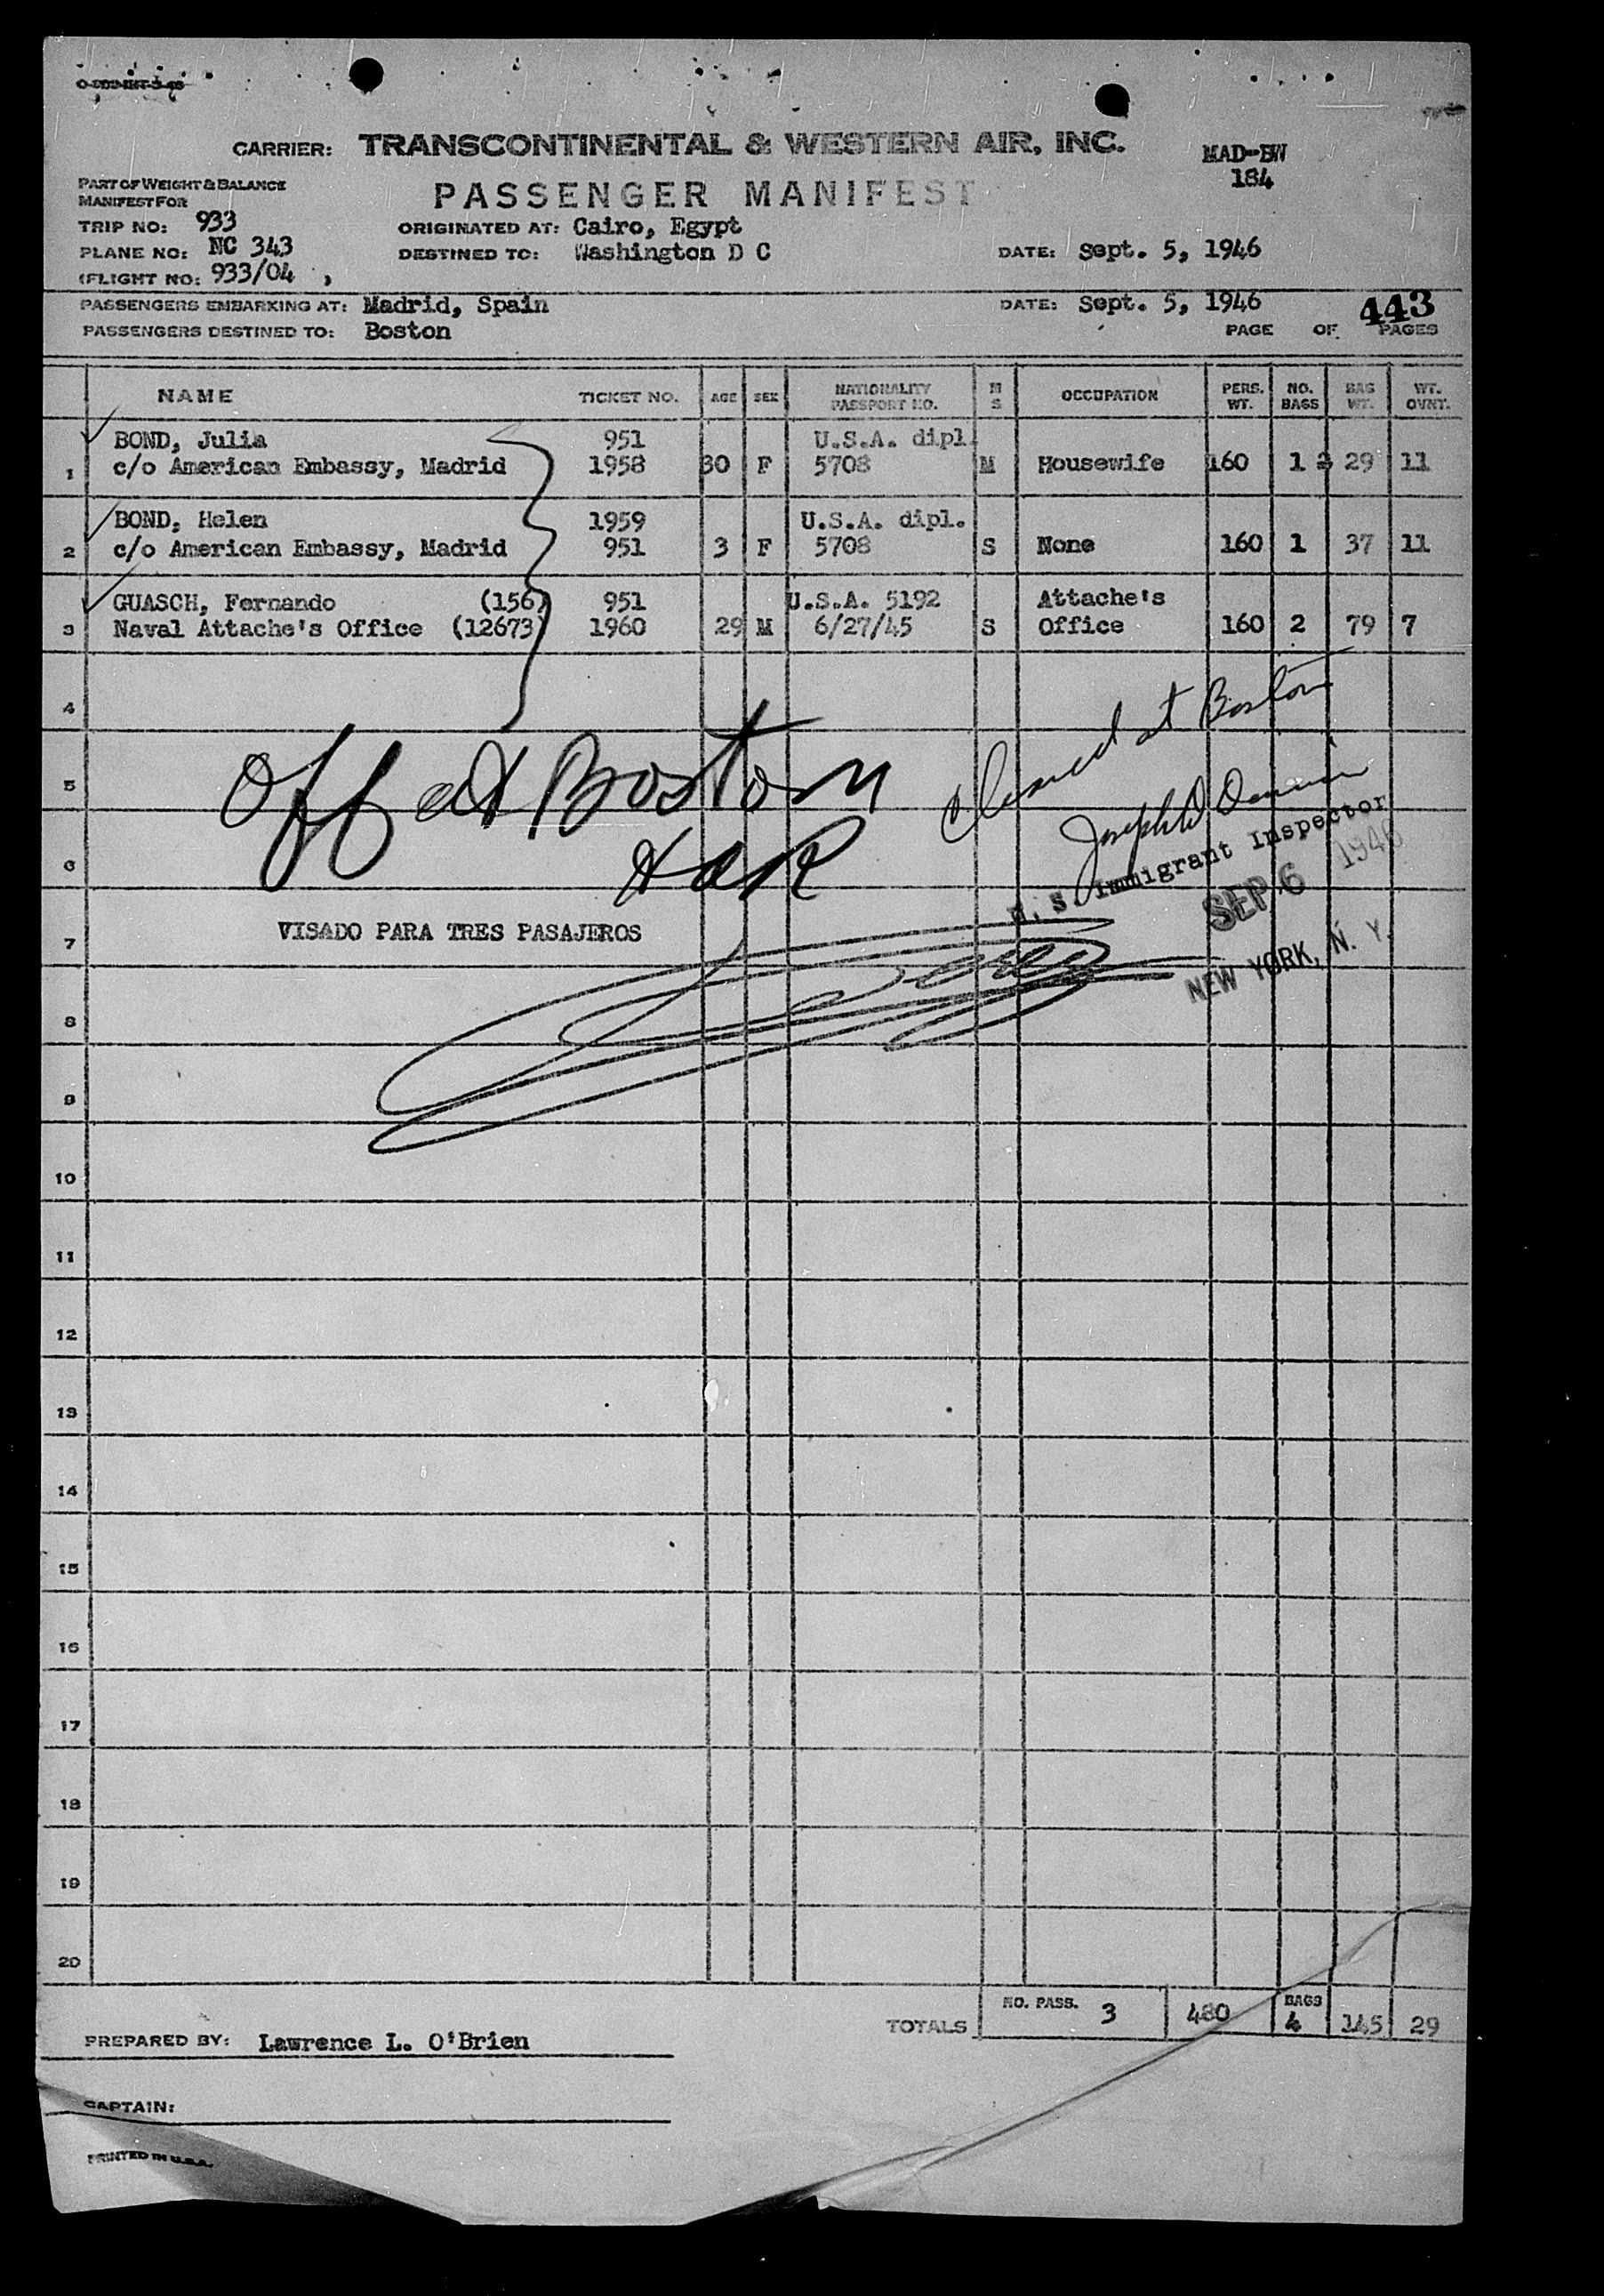 CARRIER: TRANSCONTINENTAL & WESTERN AIR, INC.
MAD-BW
184
PART OF WEIGHT & BALANCE
MANIFEST FOR
PASSENGER MANIFEST
TRIP NO: 933
ORIGINATED AT: Cairo, Egypt
PLANE NO: NC 343
DESTINED TO: Washington D C
DATE: Sept. 5, 1946
(FLIGHT NO: 933/04 )
PASSENGERS EMBARKING AT: Madrid, Spain
DATE: Sept. 5, 1946
443
PASSENGERS DESTINED TO: Boston
PAGE OF PAGES
NAME TICKET NO. AGE SEX NATIONALITY PASSPORT NO. M S OCCUPATION PERS. WT. NO. BAGS BAG WT. WT. OVNT.
BOND, Julia 951 U.S.A. dipl.
1 c/o American Embassy, Madrid 1958 30 F 5708 M Housewife 160 1 29 11
BOND, Helen 1959 U.S.A. dipl.
2 c/o American Embassy, Madrid 951 3 F 5708 S None 160 1 37 11
GUASCH, Fernando (156) 951 U.S.A. 5192 Attache's
3 Naval Attache's Office (12673) 1960 29 M 6/27/45 S Office 160 2 79 7
4
Off at Boston
5
HOR
6
Cleared at Boston
Joseph D.
U. S. Immigrant Inspector
SEP 6 1946
NEW YORK, N. Y.
VISADO PARA TRES PASAJEROS
7
8
9
10
11
12
13
14
15
16
17
18
19
20
TOTALS NO. PASS. 3 480 BAGS 4 145 29
PREPARED BY: Lawrence L. O'Brien
CAPTAIN:
PRINTED IN U.S.A.